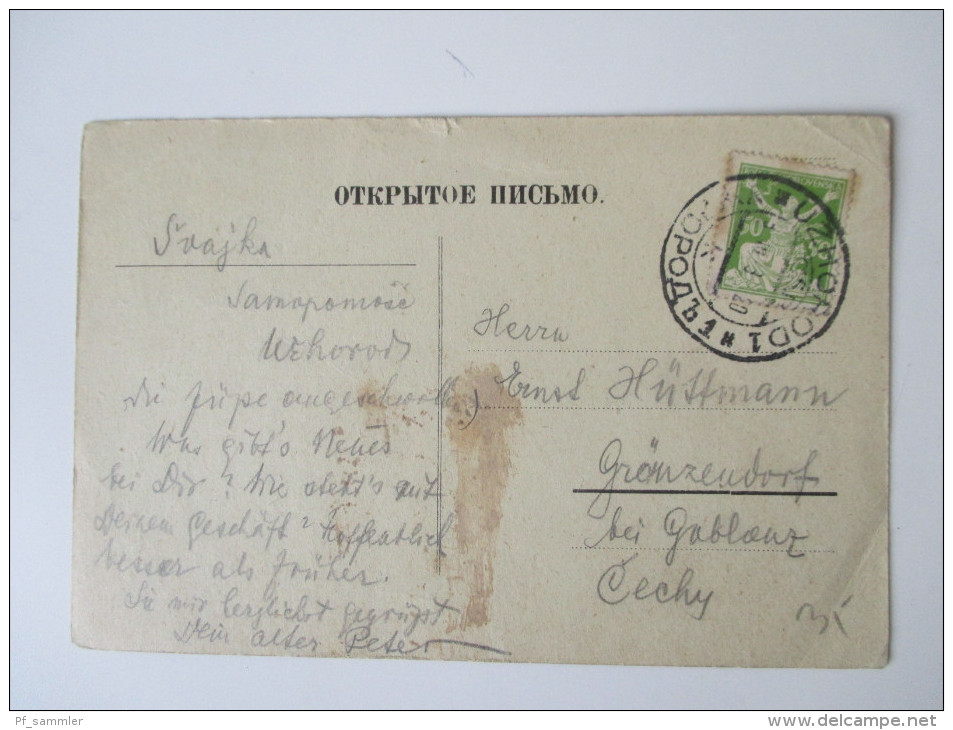 ОТКРЫТОЕ ПИСЬМО.
Švajka
Samopomošč
Užhorod
die Füße angeschwoll.)
Was gibt's Neues
bei Dir? Wie steht's mit
Deinem Geschäft? Hoffentlich
besser als früher.
Sei mir herzlichst gegrüßt
Dein alter Peter
Herrn
Ernst Hüttmann
Gränzendorf
bei Gablonz
Čechy
UŽHOROD 1
50
Pf_sammler
http://www.delcampe.net